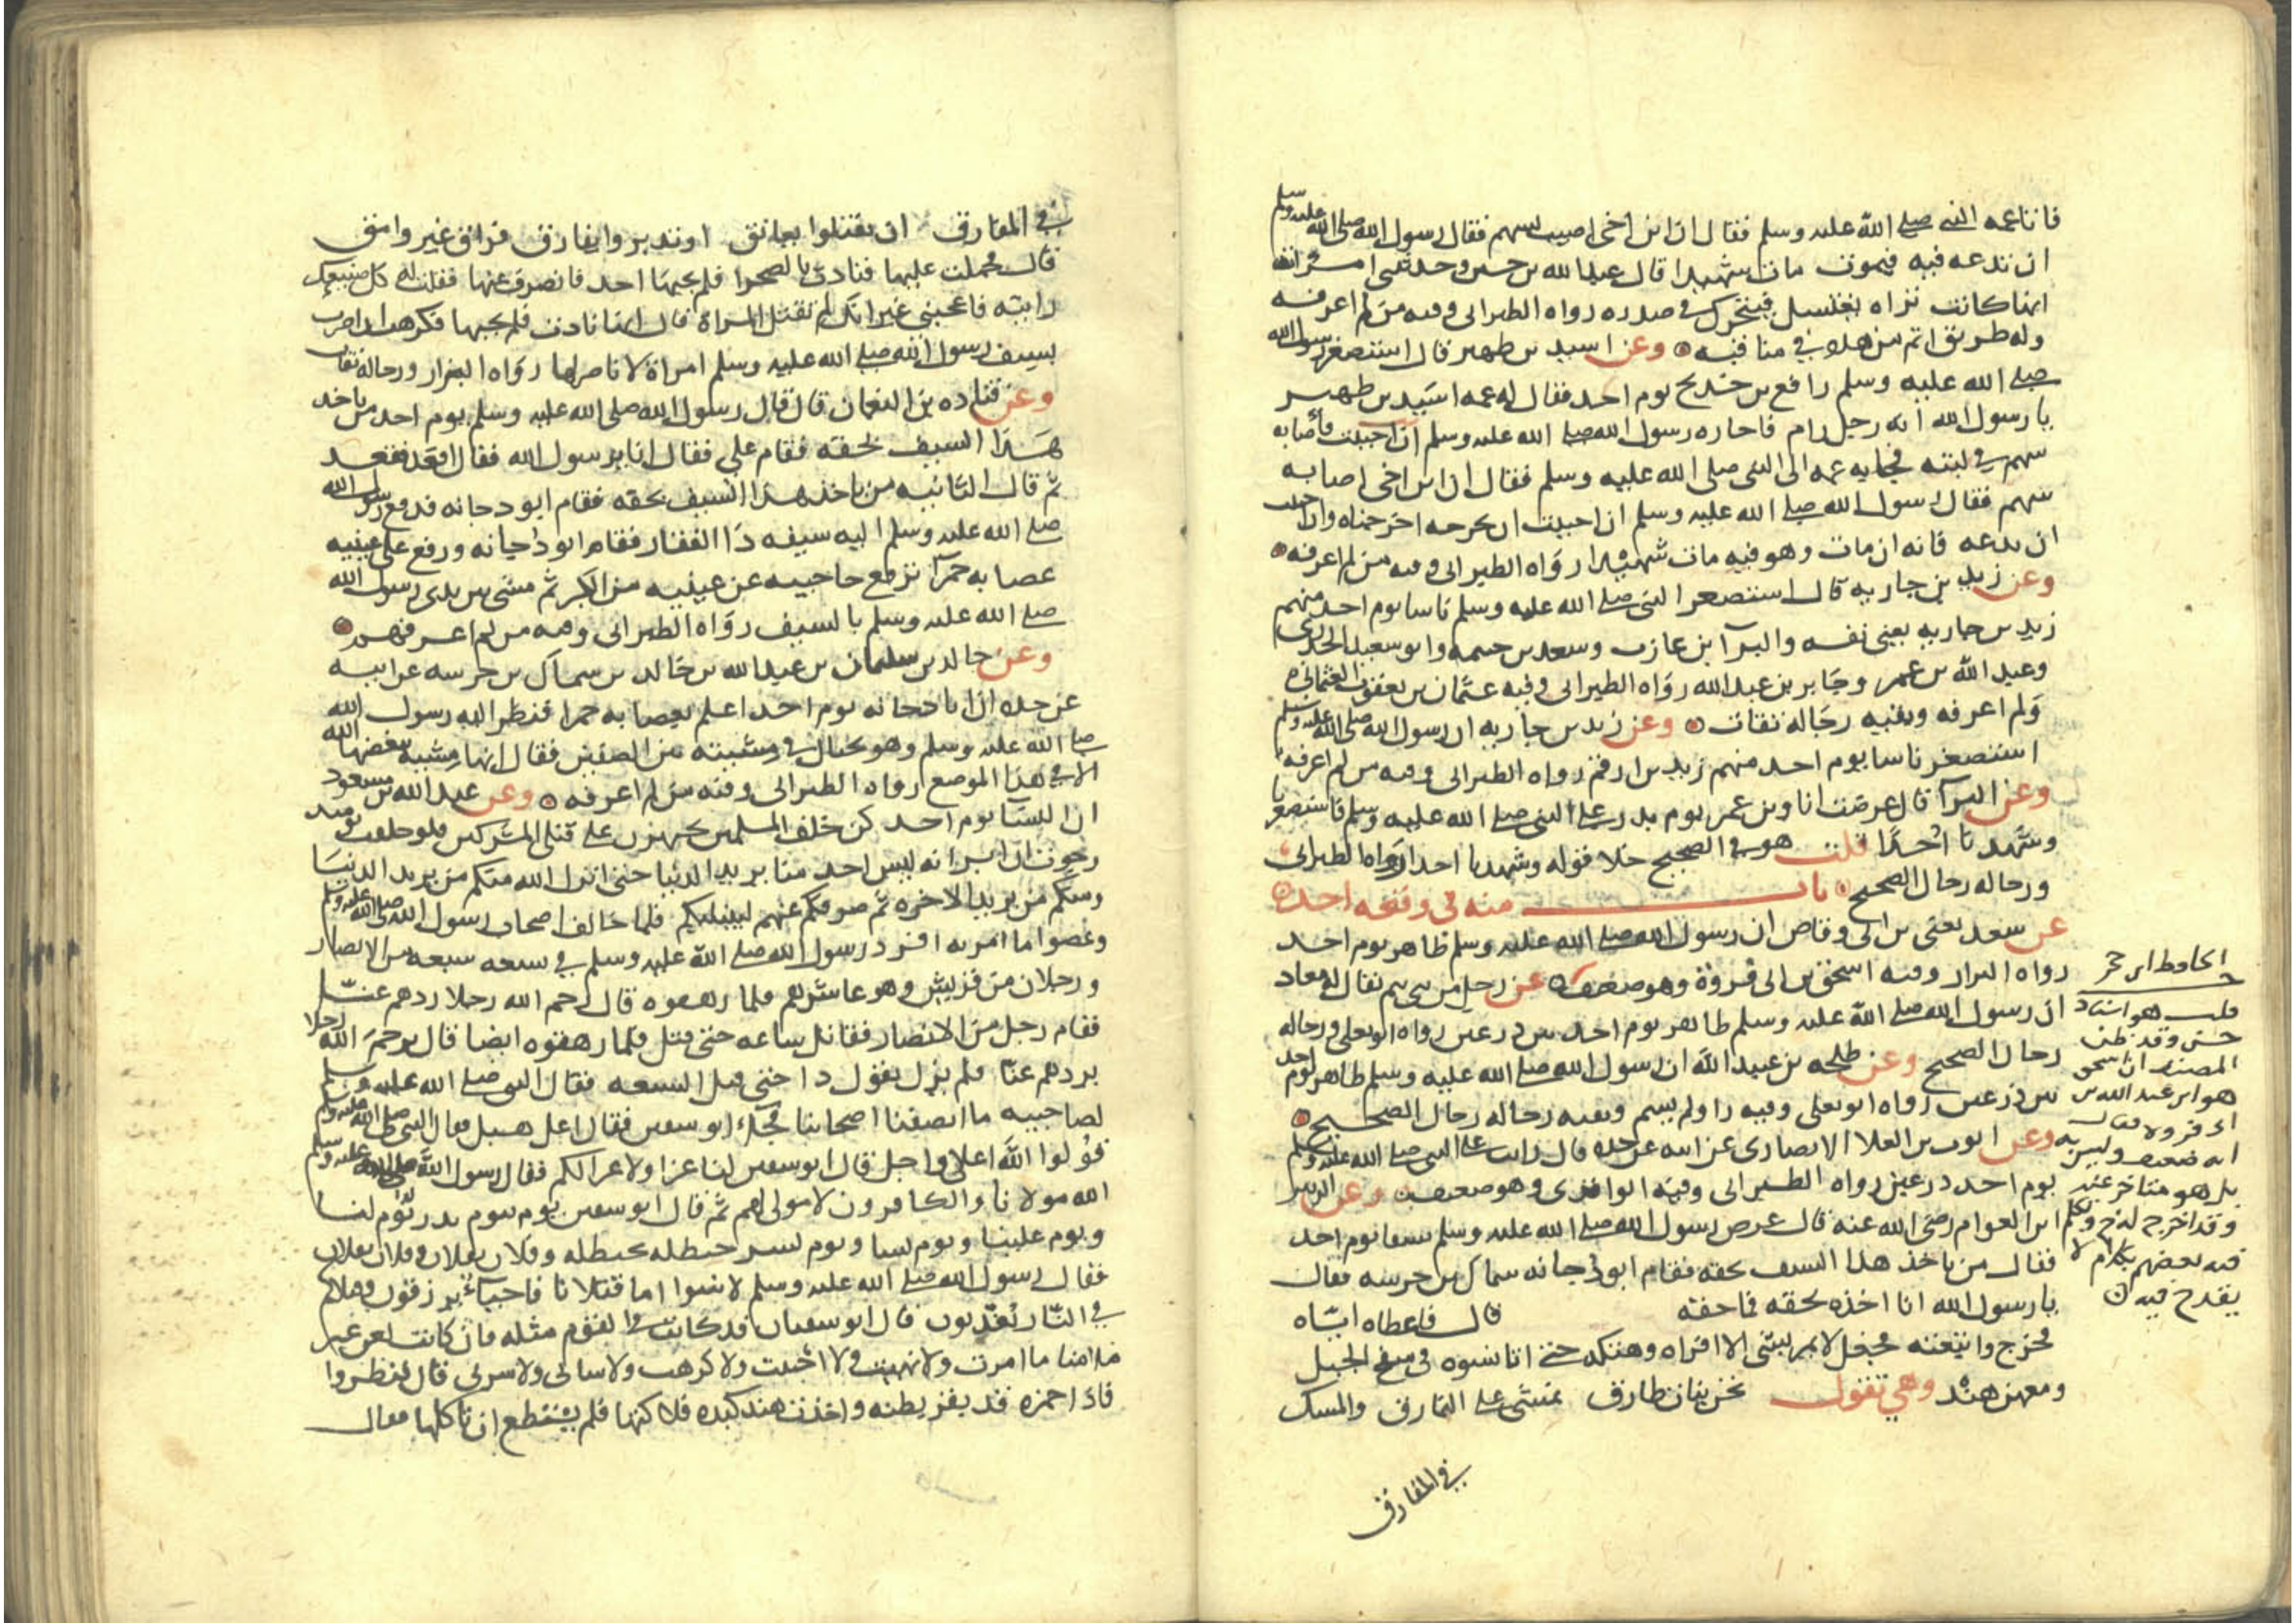 فاتا عمه النبي صلى الله عليه وسلم فقال ان ابن اخي اصيب بسهم فقال رسول الله صلى الله عليه وسلم
ان ندعه فيه فيموت مات شهيدا قال عبد الله بن حسين وحدثتني امراته
انها كانت تراه يغتسل فيتحرك في صدره رواه الطبراني وفيه من لم اعرفه
وله طريق اتم من هذا في مناقبه وعن اسيد بن ظهير قال استصغر رسول الله
صلى الله عليه وسلم رافع بن خديج يوم احد فقال له عمه اسيد بن ظهير
يا رسول الله انه رجل رام فاجازه رسول الله صلى الله عليه وسلم فاصابه
سهم في لبته فجا به عمه الى النبي صلى الله عليه وسلم فقال ان ابن اخي اصابه
سهم فقال رسول الله صلى الله عليه وسلم ان احببت ان نخرجه اخرجناه وان احببت
ان ندعه فانه ان مات وهو فيه مات شهيدا رواه الطبراني وفيه من لم اعرفه
وعن زيد بن جاريه قال استصغر النبي صلى الله عليه وسلم ناسا يوم احد منهم
زيد بن جاريه يعني نفسه والبرآ ابن عازب وسعد بن خيثمه وابو سعيد الخدري
وعبد الله بن عمر وجابر بن عبد الله رواه الطبراني وفيه عثمان بن يعقوب العثماني
ولم اعرفه وبقيه رجاله ثقات وعن زيد بن جاريه ان رسول الله صلى الله عليه وسلم
استصغر ناسا يوم احد منهم زيد بن ارقم رواه الطبراني وفيه من لم اعرفه
وعن البرآ قال عرضت انا وابن عمر يوم بدر على النبي صلى الله عليه وسلم فاستصغرنا
وشهدنا احدا قلت هو في الصحيح خلا قوله وشهدنا احدا رواه الطبراني
ورجاله رجال الصحيح باب منه في وقعه احد
عن سعد يعني بن ابي وقاص ان رسول الله صلى الله عليه وسلم ظاهر يوم احد
رواه البزار وفيه اسحق بن ابي فروة وهو ضعيف عن رجل من بني تيم يقال له معاذ
ان رسول الله صلى الله عليه وسلم ظاهر يوم احد بين درعين رواه ابو يعلى ورجاله
رجال الصحيح وعن طلحه بن عبيد الله ان رسول الله صلى الله عليه وسلم ظاهر يوم احد
بين درعين رواه ابو يعلى وفيه راو لم يسم وبقيه رجاله رجال الصحيح
وعن ايوب بن العلا الانصاري عن ابيه عن جده قال رايت على النبي صلى الله عليه وسلم
يوم احد درعين رواه الطبراني وفيه الواقدي وهو ضعيف وعن الزبير
ابن العوام رضي الله عنه قال عرض رسول الله صلى الله عليه وسلم سيفا يوم احد
فقال من ياخذ هذا السيف بحقه فقام ابو دجانه سماك بن خرشه فقال
يا رسول الله انا اخذه بحقه فما حقه قال فاعطاه اياه
فخرج واتبعته فجعل لا يمر بشي الا افراه وهتكه حتى اتا نسوه في سفح الجبل
ومعهن هند وهي تقول نحن بنات طارق نمشي على النمارق والمسك
في المفارق
الحافظ ابن حجر
قلت هو اسناد
حسن وقد ظن
المصنف ان اسحق
هو ابن عبد الله بن
ابي فروه
انه ضعيف وليس به
بل هو متاخر عنه
وقد اخرج له خ وتكلم
فيه بعضهم بكلام لا
يقدح فيه
في المفارق ان تقبلوا نعانق او تدبروا نفارق فراق غير وامق
قال فحملت عليها فنادت بالصحرا فلم يجبها احد فانصرف عنها فقلت له كل صنيعك
رايته فاعجبني غير انك لم تقتل المراة قال انها نادت فلم يجبها فكرهت ان اضرب
بسيف رسول الله صلى الله عليه وسلم امراة لا ناصر لها رواه البزار ورجاله ثقات
وعن قتاده بن النعمان قال قال رسول الله صلى الله عليه وسلم يوم احد من ياخذ
هذا السيف بحقه فقام علي فقال انا يرسول الله فقال اقعد فقعد
ثم قال الثانيه من ياخذ هذا السيف بحقه فقام ابو دجانه فدفع رسول الله
صلى الله عليه وسلم اليه سيفه ذا الفقار فقام ابو دجانه ورفع على عينيه
عصابه حمرآ ترفع حاجبيه عن عينيه من الكبر ثم مشى بين يدي رسول الله
صلى الله عليه وسلم بالسيف رواه الطبراني وفيه من لم اعرفهم
وعن خالد بن سليمان بن عبد الله بن خالد بن سماك بن خرشه عن ابيه
عن جده ان ابا دجانه يوم احد اعلم بعصابه حمرا فنظر اليه رسول الله
صلى الله عليه وسلم وهو مختال في مشيته بين الصفين فقال انها مشيه يبغضها الله
الا في هذا الموضع رواه الطبراني وفيه من لم اعرفه وعن عبد الله بن مسعود
ان النسا يوم احد كن خلف المسلمين يجهزن على قتلى المشركين فلو حلفت يوميذ
رجوت ان ابر انه ليس احد منا يريد الدنيا حتى انزل الله منكم من يريد الدنيا
ومنكم من يريد الاخره ثم صرفكم عنهم ليبتليكم فلما خالف اصحاب رسول الله صلى الله عليه وسلم
وعصوا ما امر به افرد رسول الله صلى الله عليه وسلم في تسعه سبعه من الانصار
ورجلان من قريش وهو عاشرهم فلما رهقوه قال رحم الله رجلا ردهم عنا
فقام رجل من الانصار فقاتل ساعه حتى قتل فلما رهقوه ايضا قال يرحم الله رجلا
يردهم عنا فلم يزل يقول ذا حتى قتل السبعه فقال النبي صلى الله عليه وسلم
لصاحبيه ما انصفنا اصحابنا فجاء ابو سفين فقال اعل هبل فقال النبي صلى الله عليه وسلم
قولوا الله اعلى واجل قال ابو سفين لنا عزا ولا عزا لكم فقال رسول الله صلى الله عليه وسلم
الله مولانا والكافرون لا مولى لهم ثم قال ابو سفين يوم بيوم بدر يوم لنا
ويوم علينا ويوم نسا ويوم نسر حنظله بحنظله وفلان بفلان وفلان بفلان
فقال رسول الله صلى الله عليه وسلم لا سوا اما قتلانا فاحياء يرزقون وقتلاكم
في النار يعذبون قال ابو سفيان قد كانت في القوم مثله فان كانت لعن غير
ملامنا ما امرت ولا نهيت ولا احببت ولا كرهت ولا سائي ولا سرني قال فنظروا
فاذا حمزه قد بقر بطنه واخذت هند كبده فلاكتها فلم تستطع ان تاكلها فقال